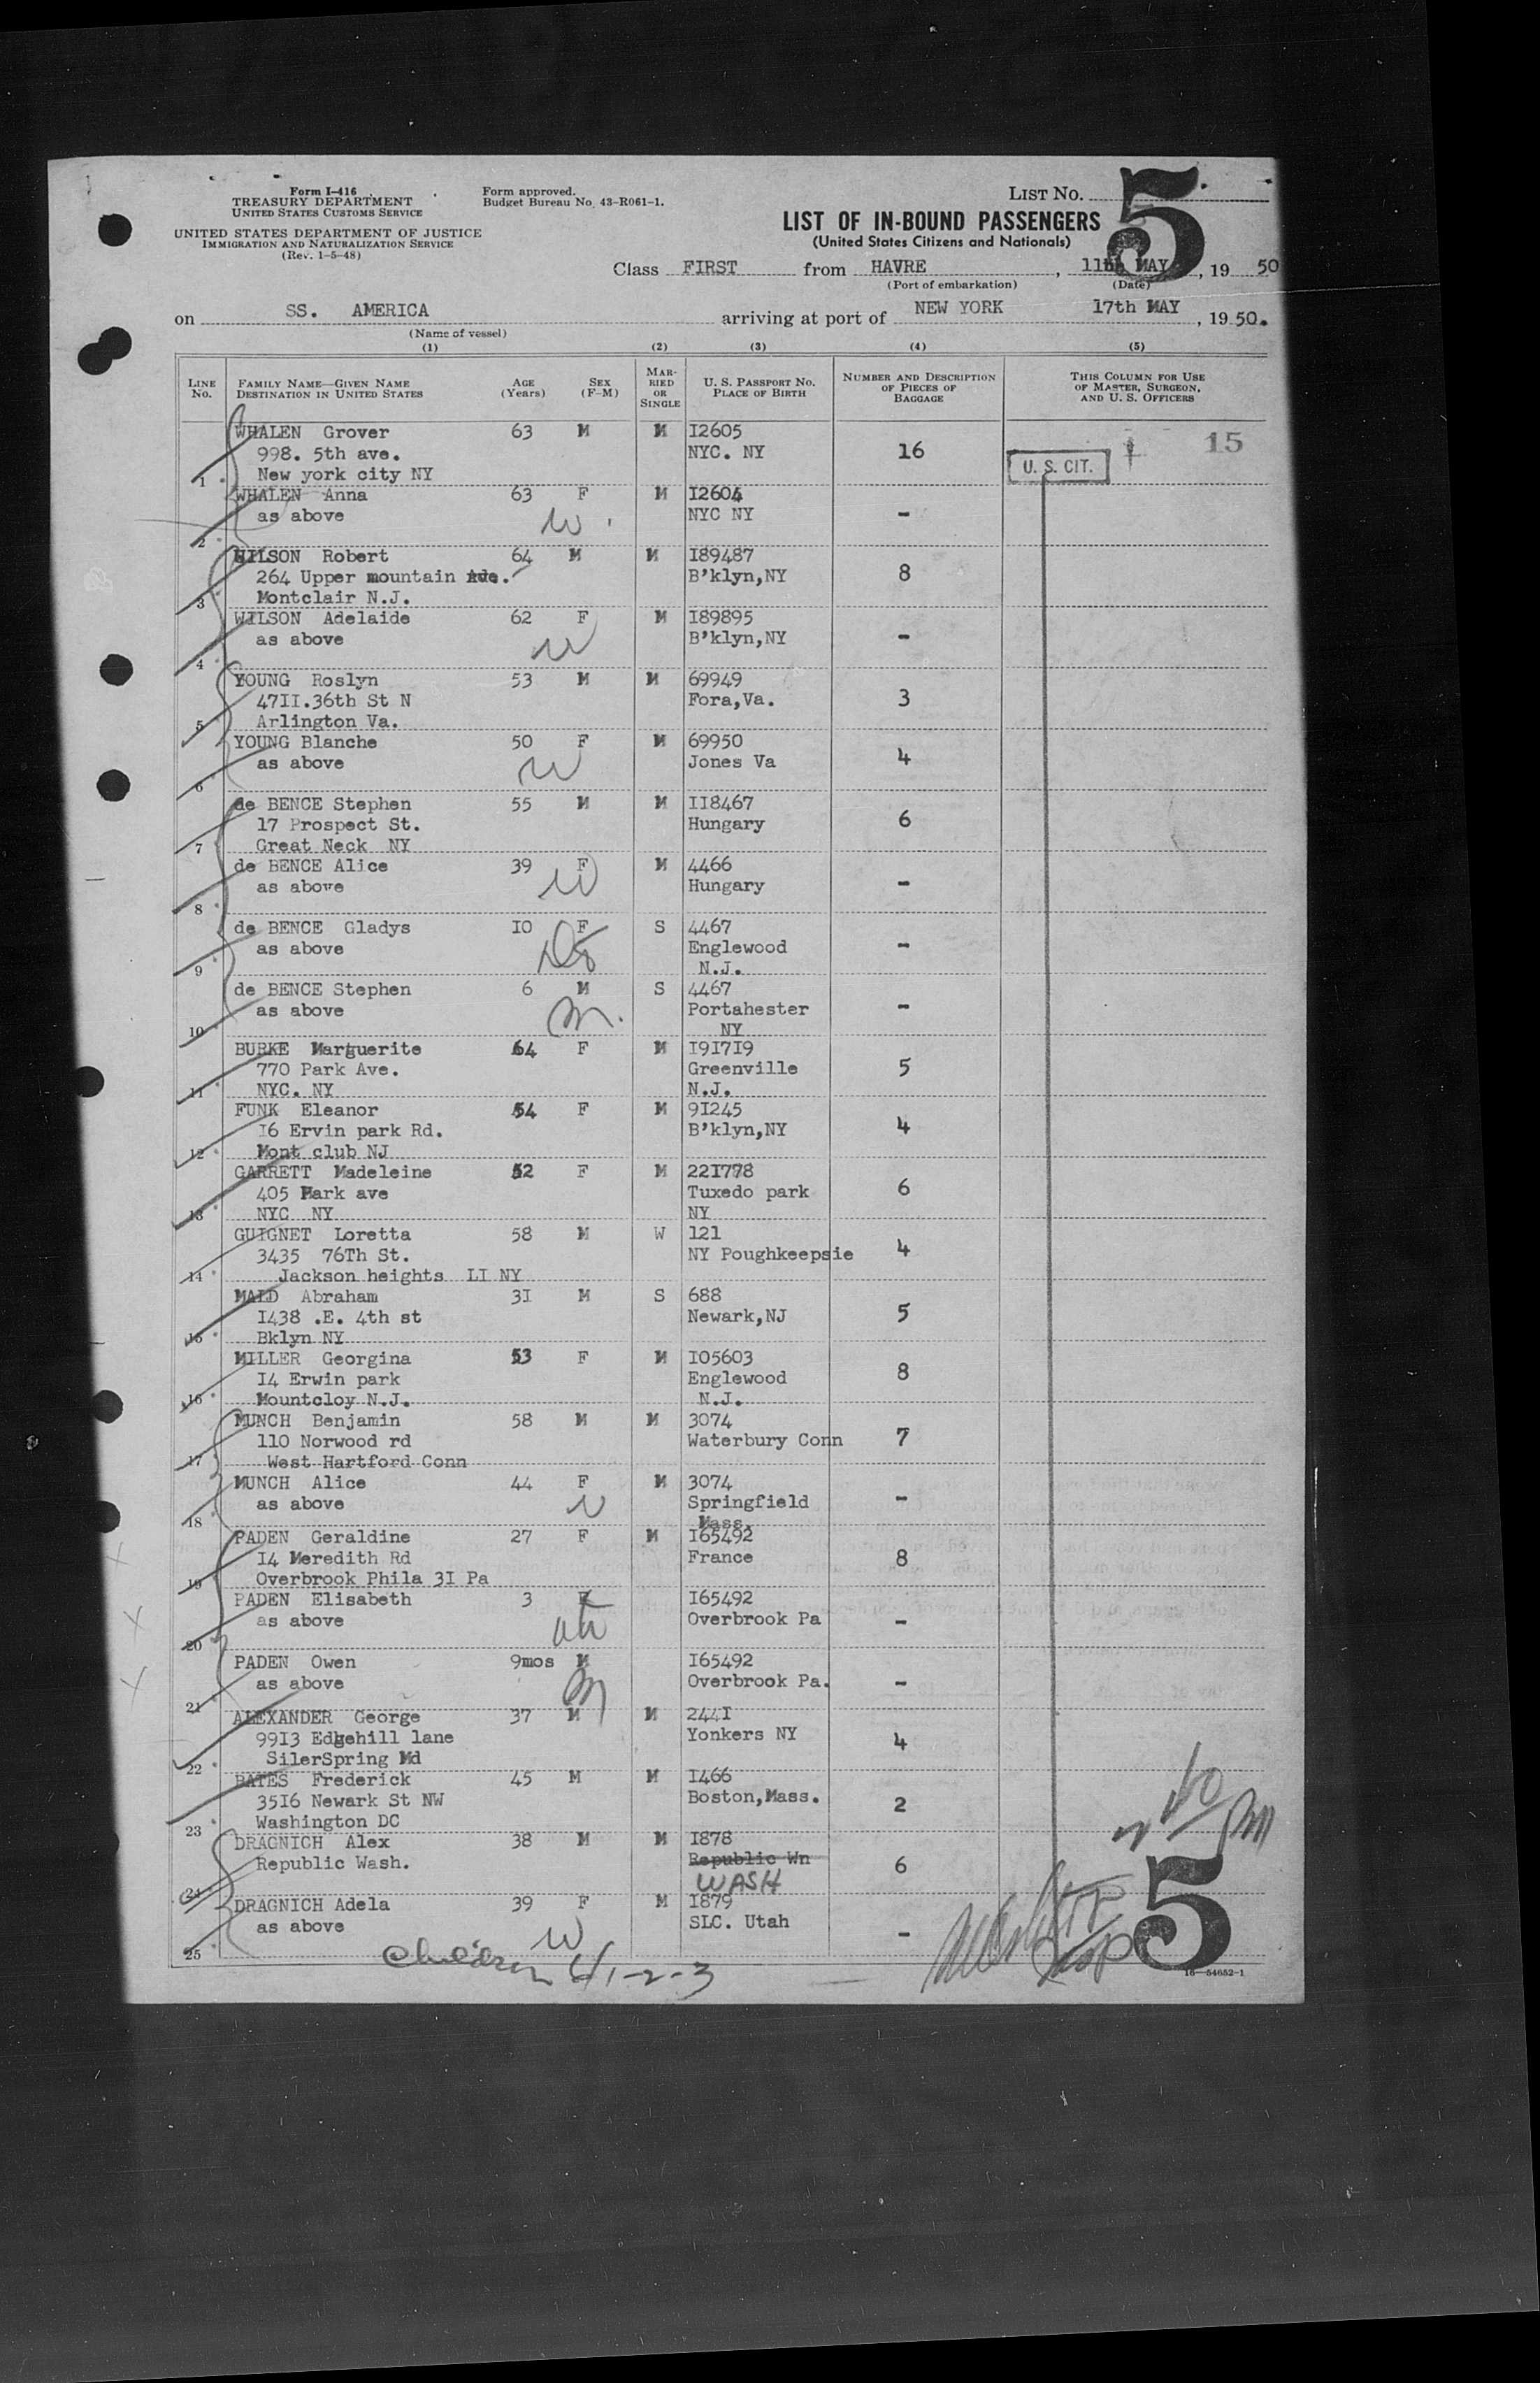 Form I-416
TREASURY DEPARTMENT
UNITED STATES CUSTOMS SERVICE
UNITED STATES DEPARTMENT OF JUSTICE
IMMIGRATION AND NATURALIZATION SERVICE
(Rev. 1-5-48)
Form approved.
Budget Bureau No. 43-R061-1.
LIST NO. 5
LIST OF IN-BOUND PASSENGERS
(United States Citizens and Nationals)
Class FIRST from HAVRE, 11th MAY, 19 50
(Port of embarkation) (Date)
on SS. AMERICA arriving at port of NEW YORK 17th MAY, 19 50.
(Name of vessel)
(1) (2) (3) (4) (5)
LINE No.
FAMILY NAME—GIVEN NAME
DESTINATION IN UNITED STATES
AGE (Years)
SEX (F-M)
MARRIED OR SINGLE
U. S. PASSPORT NO.
PLACE OF BIRTH
NUMBER AND DESCRIPTION OF PIECES OF BAGGAGE
THIS COLUMN FOR USE OF MASTER, SURGEON, AND U. S. OFFICERS
WHALEN Grover 63 M M I2605
998. 5th ave. NYC. NY 16 U. S. CIT. 15
1 New york city NY
WHALEN Anna 63 F M I2604
as above NYC NY -
2
WILSON Robert 64 M M I89487
264 Upper mountain Ave. B'klyn,NY 8
3 Montclair N.J.
WILSON Adelaide 62 F M I89895
as above B'klyn,NY -
4
YOUNG Roslyn 53 M M 69949
47II.36th St N Fora,Va. 3
5 Arlington Va.
YOUNG Blanche 50 F M 69950
as above Jones Va 4
6
de BENCE Stephen 55 M M II8467
17 Prospect St. Hungary 6
7 Great Neck NY
de BENCE Alice 39 F M 4466
as above Hungary -
8
de BENCE Gladys IO F S 4467
as above Englewood -
9 N.J.
de BENCE Stephen 6 M S 4467
as above Portahester -
10 NY
BURKE Marguerite 64 F M I9I7I9
770 Park Ave. Greenville 5
11 NYC. NY N.J.
FUNK Eleanor 54 F M 9I245
I6 Ervin park Rd. B'klyn,NY 4
12 Mont club NJ
GARRETT Madeleine 52 F M 22I778
405 Park ave Tuxedo park 6
13 NYC NY NY
GUIGNET Loretta 58 M W 121
3435 76Th St. NY Poughkeepsie 4
14 Jackson heights LI NY
MALD Abraham 3I M S 688
I438 .E. 4th st Newark,NJ 5
15 Bklyn NY
MILLER Georgina 53 F M IO5603
I4 Erwin park Englewood 8
16 Mountcloy N.J. N.J.
MUNCH Benjamin 58 M M 3074
110 Norwood rd Waterbury Conn 7
17 West Hartford Conn
MUNCH Alice 44 F M 3074
as above Springfield -
18 Mass.
PADEN Geraldine 27 F M I65492
I4 Meredith Rd France 8
19 Overbrook Phila 3I Pa
PADEN Elisabeth 3 F I65492
as above Overbrook Pa -
20
PADEN Owen 9mos M I65492
as above Overbrook Pa. -
21
ALEXANDER George 37 M M 244I
99I3 Edgehill lane Yonkers NY 4
22 SilerSpring Md
BATES Frederick 45 M M I466
35I6 Newark St NW Boston,Mass. 2
23 Washington DC
DRAGNICH Alex 38 M M I878
Republic Wash. Republic Wn 6
24 WASH
DRAGNICH Adela 39 F M I879
as above SLC. Utah -
25
Children 6/1-2-3
5
16—54652-1